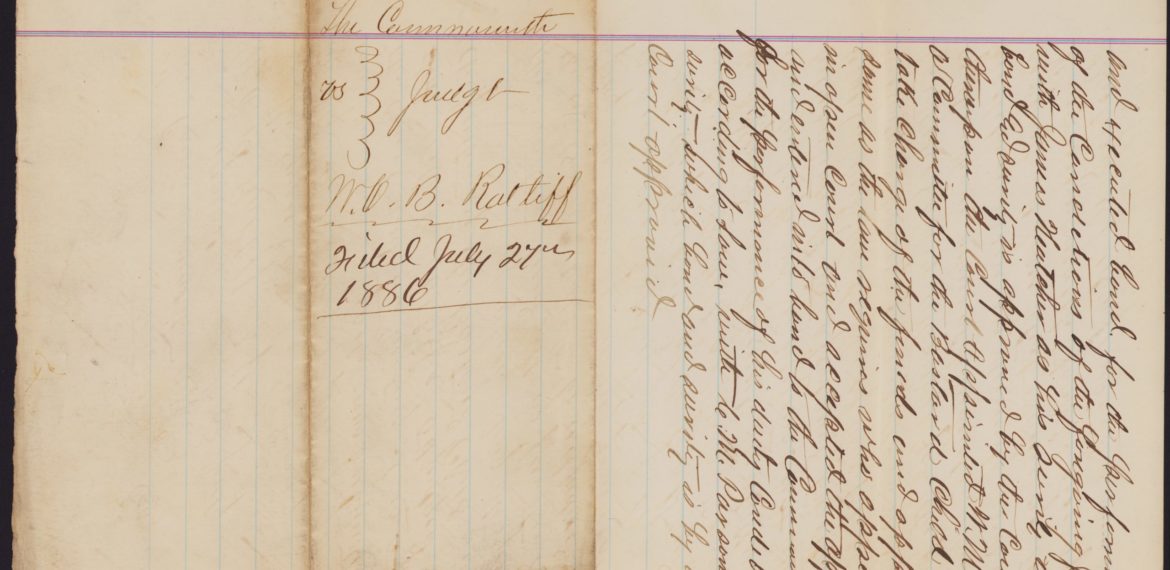 The Commonwealth
vs Judgt
W. O. B. Ratliff
Filed July 27th
1886
and executed bond for the perform
of the Conditions of the foregoing J
with James Hatcher as his Surity
bond and surity is approved by the Co
thereupon the Court appointed W. M
a Committee for the Bastard Child
take charge of the funds and app
same as the law requires who appe
in open Court and accepted the ap
and entered into bond to the Common
for the performance of his duty
according to law, with G. M. Parson
surity which bond and surity is by
Court approved